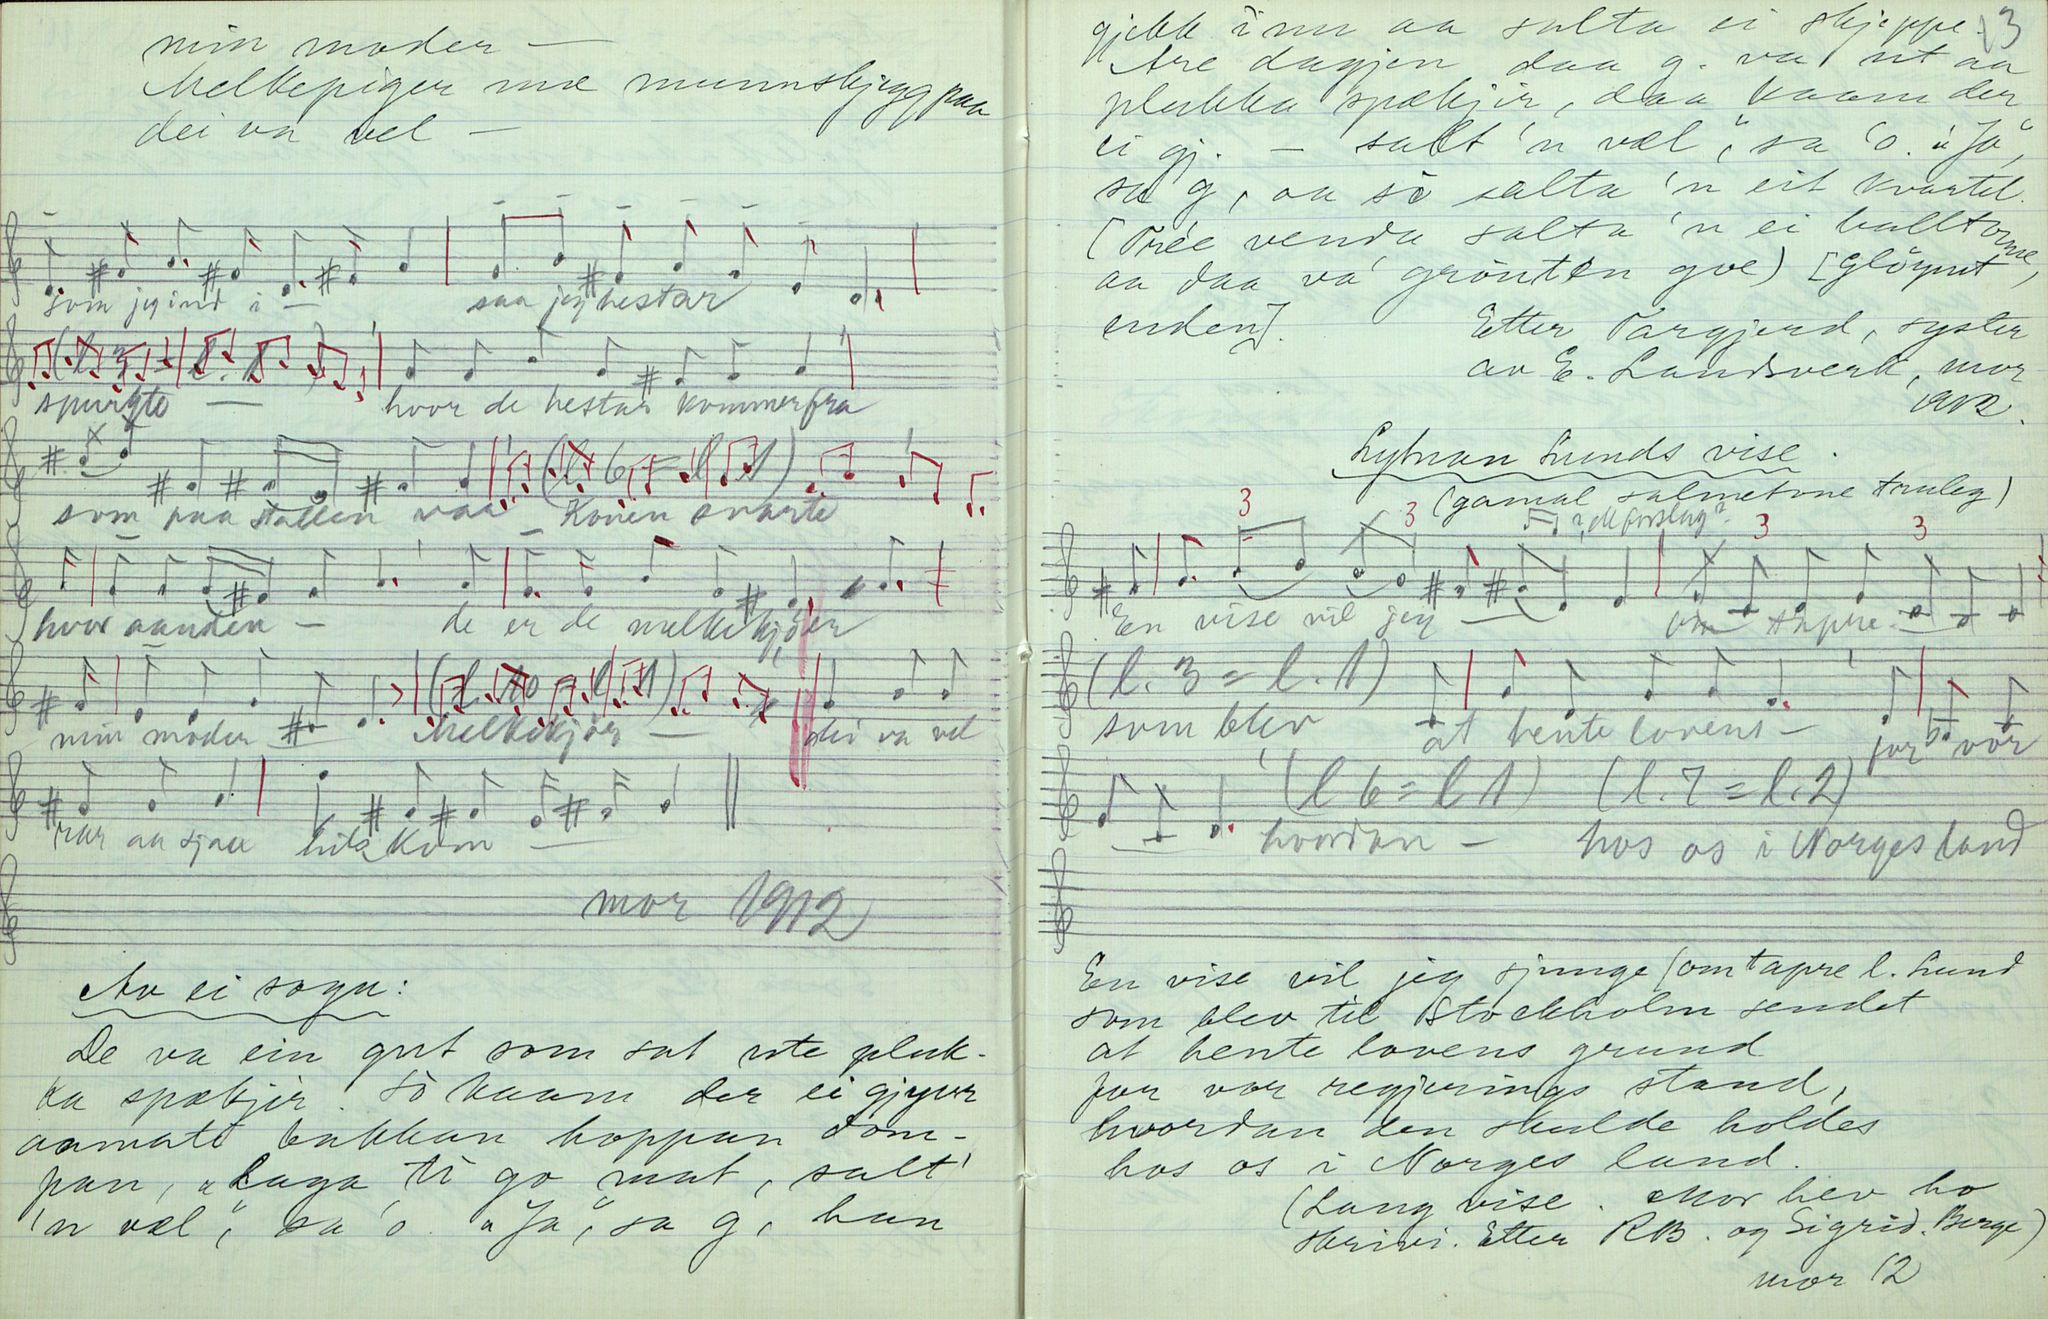 min moder —
Melkepiger mæ munnskjegg paa
dei va vel —
som jeg ind i — saa jeg hestar
spurgte — hvor de hestar kommer fra
som paa stallen vaa — Konen svarte
(l 6 = l 1)
hvor aanden — de er de melkekjøer
min moder — Melkekjøer — dei va vel
(l. 10 = l. 1)
rar aa sjaa hils Kom —
mor 1912
Av ei sogu:
De va ein gut som sat ute pluk-
ka spækjir. Sò kaam der ei gjyver
aamatt bakkan hoppan dom-
pan, „Laga ti go mat, salt
'n væl", sa 'o. „Ja", sa g, han
13
gjekk inn aa salta ei skjeppe.
Are dagjen daa g. va ut aa
plukka spækjir, daa kaam der
ei gj. — salt 'n væl", sa 'o. „Ja",
sa g, aa sò salta 'n eit kvartel.
(Trée venda salta 'n ei halltonne,
aa daa va grönten goe) [Glöymt
enden].
Etter Targjerd, syster
av E. Landsverk, mor
1912.
Lytnan Lunds vise.
(gamal salmetone truleg)
3 3 3 3
En vise vil jeg — om tapre —
(l. 3 = l. 1)
som blev at hente lovens — for vor
(l 6 = l 1) (l. 7 = l. 2)
— hvordan — hos os i Norges land
En vise vil jeg sjunge / om tapre l. Lund
som blev til Stockholm sendet
at hente lovens grund
for vor regjerings stand,
hvordan den skulde holdes
hos os i Norges land.
(Lang vise. Mor hev ho
skrivi. Etter RB. og Sigrid. Berge)
mor 12